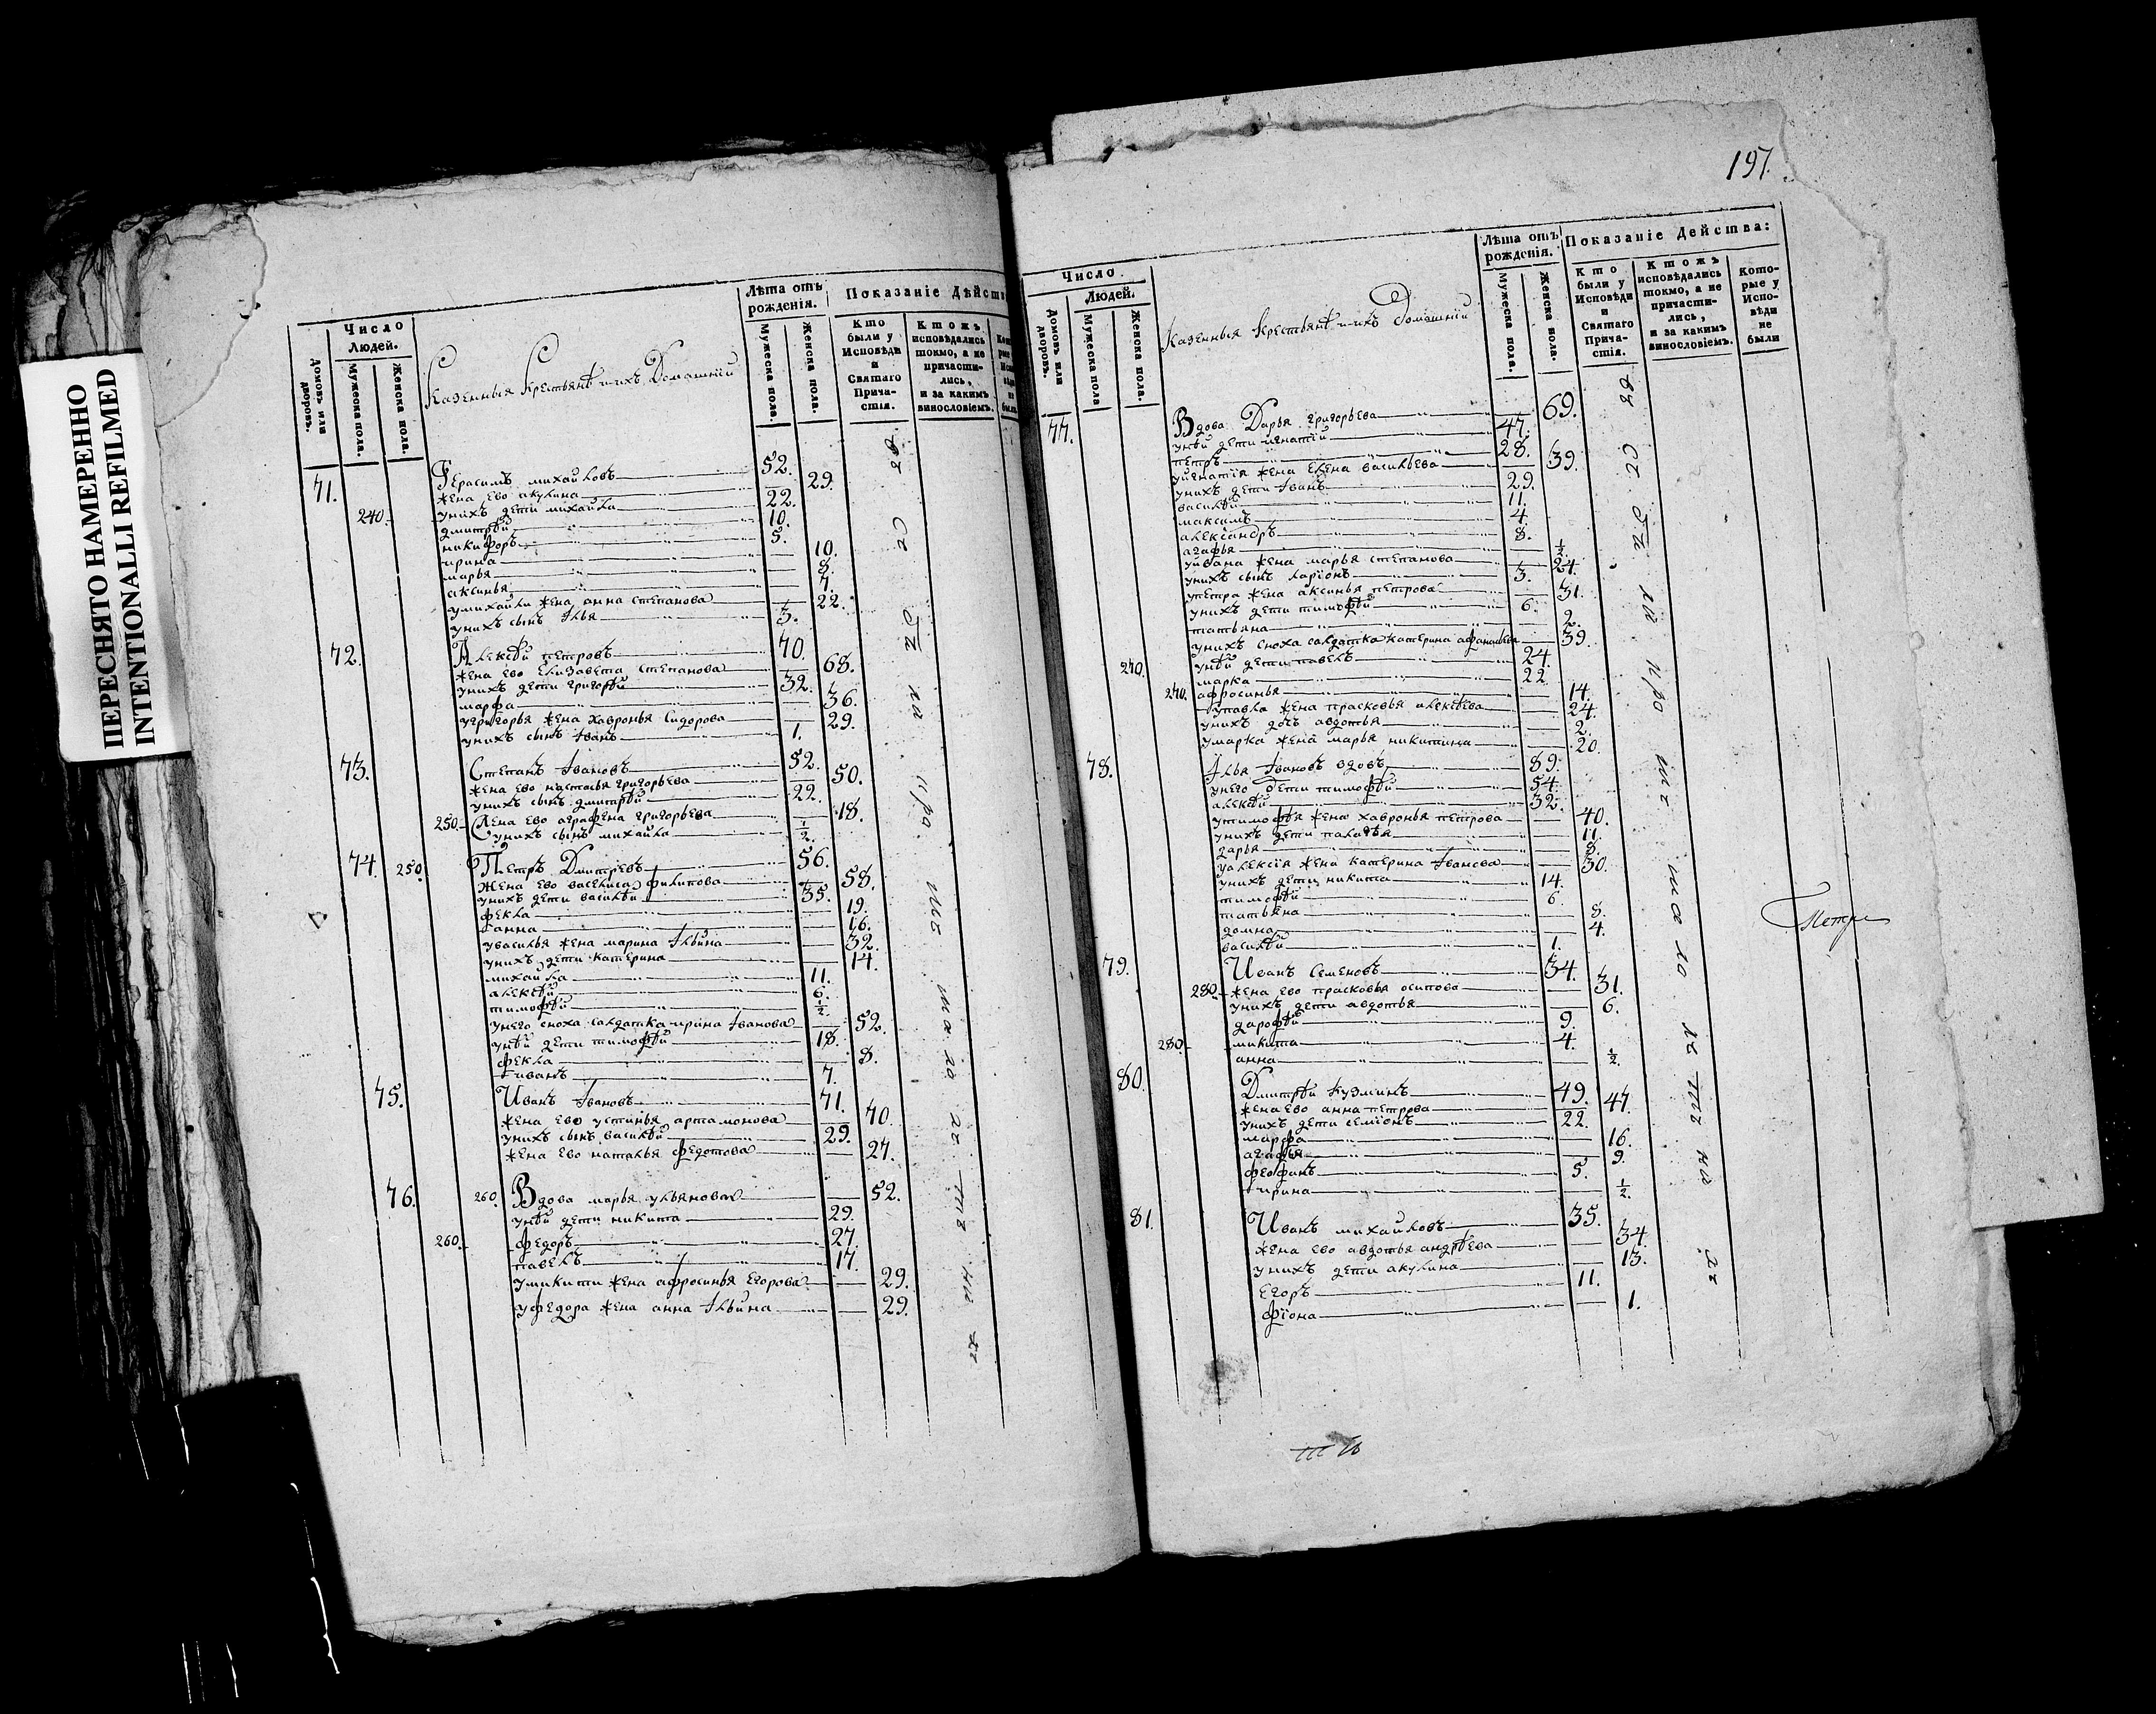 ПЕРЕСНЯТО НАМЕРЕННО
INTENTIONALLI REFILMED
Число
Людей.
Домовъ или дворовъ.
Мужеска пола.
Женска пола.
Казенныя Крестьянѣ и ихъ Домашнїи
Лѣта отъ рожденія.
Мужеска пола.
Женска пола.
Показаніе Дѣйств
Кто были у Исповѣди и Святаго Причастія.
Ктожъ исповѣдались токмо, а не причастились, и за какимъ винословіемъ.
71. Герасимъ михайловъ 52.
жена ево акулина 29.
240. унихъ дети михайла 22.
дмитрѣй 10.
никифоръ 5.
ирина 10.
марья 8.
аксинья 7.
умихайли жена анна степанова 22.
унихъ сынъ Илья 3.
72. Алексѣй петровъ 70.
жена ево Елизавета степанова 68.
унихъ дети григорѣй 32.
марфа 36.
угригорья жена хавронья Сидорова 29.
унихъ сынъ Iванъ 1.
73. Степанъ Iвановъ 52.
жена ево настасья григорьева 50.
унихъ сынъ дмитрѣй 22.
250. жена ево аграфена григорьева 18.
унихъ сынъ михайла ½.
74. 250. Петръ Дмитрѣевъ 56.
жена ево василиса филипова 58.
унихъ дети василѣй 35.
фекла 19.
анна 16.
увасилья жена марина Iльина 32.
унихъ дети катерина 14.
михайла 11.
алексѣй 6.
тимофѣй ½.
унего сноха салдатка ирина Iванова 52.
унѣй дети тимофѣй 18.
фекла 8.
иванъ 7.
75. Иванъ Iвановъ 71.
жена ево устинья артамонова 70.
унихъ сынъ василѣй 29.
жена ево наталья федотова 27.
76. 260. Вдова марья ульянова 52.
унѣй дети никита 29.
260. федоръ 27.
павелъ 17.
уникити жена афросинья Егорова 29.
уфедора жена анна Iльина 29.
197.
Число
Людей.
Домовъ или дворовъ.
Мужеска пола
Женска пола.
Казенныя Крестьянѣ и ихъ Домашнїи
Лѣта отъ рожденія.
Мужеска пола.
Женска пола.
Показаніе Дейсшва:
Кто были у Исповѣди и Святаго Причастія.
Ктожъ исповѣдались токмо, а не причастились, и за какимъ винословіемъ.
Которые у Исповѣди не были
77. Вдова Дарья григорьева 69.
унѣй дети игнатїй 47.
петръ 28.
уигнатїя жена Елена васильева 39.
унихъ дети Iванъ 29.
василѣй 11.
максимъ 4.
александръ 8.
агафья ½.
уивана жена марья степанова 24.
унихъ сынъ ларїонъ 3.
упетра жена аксинья петрова 31.
унихъ дети тимофѣй 6.
татьяна 2.
унихъ сноха салдатка катерина афанасьева 39.
270. унѣй дети павелъ 24.
марка 22
270. афросинья 14.
упавла жена прасковья алексѣева 24.
унихъ дочь авдотья 2.
умарка жена марья никитина 20.
78. Iлья Iвановъ вдовъ 89.
унего дети тимофѣй 54.
алексѣй 32.
утимофѣя жена хавронья петрова 40.
унихъ дети палагѣя 11.
дарья 8.
уалексїя жена катерина Iванова 30.
унихъ дети никита 14.
тимофѣй 6.
татьяна 8.
домна 4.
василѣй 1.
79. Иванъ Семеновъ 34.
280. жена ево прасковья осипова 31.
унихъ дети авдотья 6.
дарофѣй 9.
280. никита 4.
анна ½.
80. Дмитрѣй кузминъ 49.
жена ево анна петрова 47.
унихъ дети семїонъ 22.
марфа 16.
агафья 9.
феофанъ 5.
ирина ½.
81. Иванъ михайловъ 35.
жена ево авдотья андрѣева 34.
унихъ дети акулина 13.
Егоръ 11.
фїона 1.